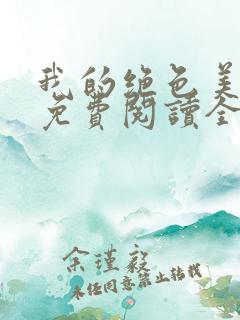 我的绝色美
免費閱讀全
余瑾毅
未经同意禁止转载